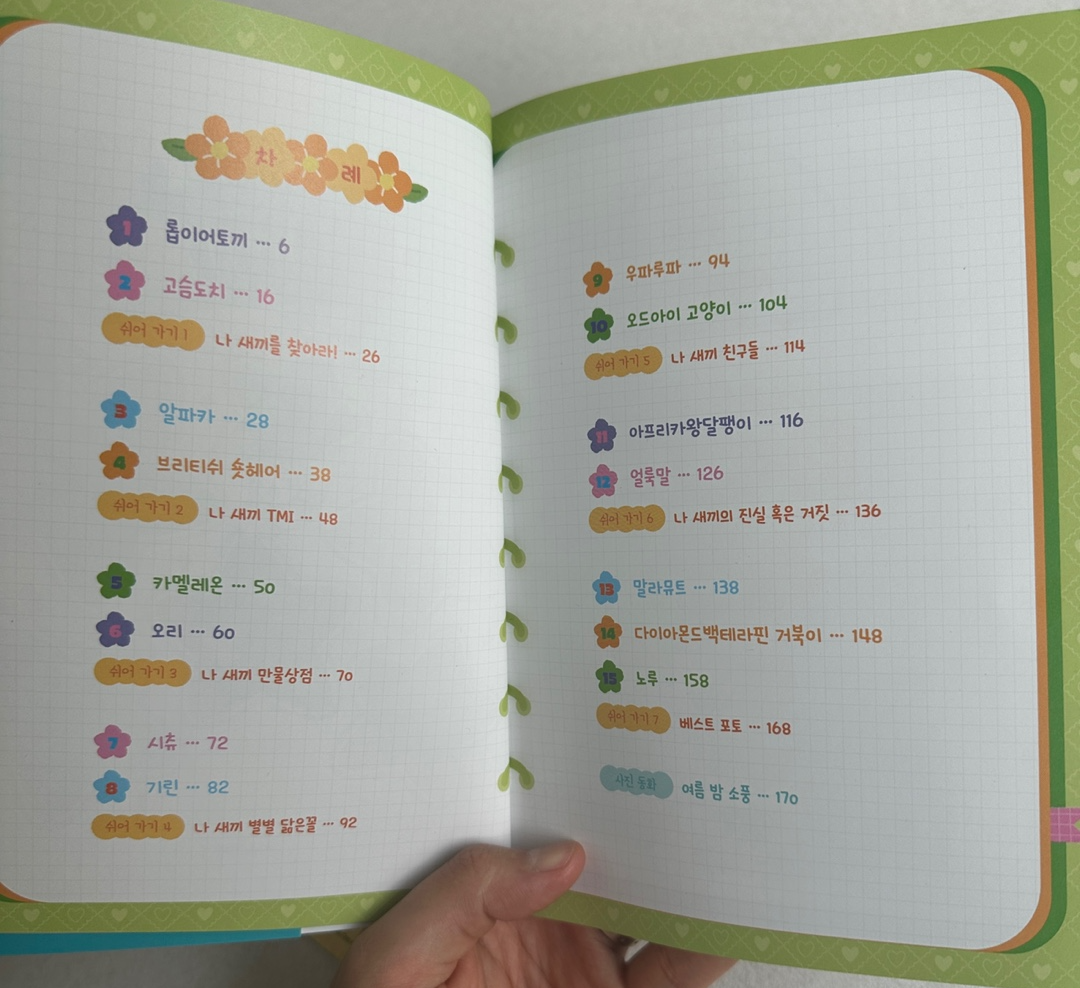 차례
1 롭이어토끼 ··· 6
2 고슴도치 ··· 16
쉬어 가기 1 나 새끼를 찾아라! ··· 26
3 알파카 ··· 28
4 브리티쉬 숏헤어 ··· 38
쉬어 가기 2 나 새끼 TMI ··· 48
5 카멜레온 ··· 50
6 오리 ··· 60
쉬어 가기 3 나 새끼 만물상점 ··· 70
7 시츄 ··· 72
8 기린 ··· 82
쉬어 가기 4 나 새끼 별별 닮은꼴 ··· 92
9 우파루파 ··· 94
10 오드아이 고양이 ··· 104
쉬어 가기 5 나 새끼 친구들 ··· 114
11 아프리카왕달팽이 ··· 116
12 얼룩말 ··· 126
쉬어 가기 6 나 새끼의 진실 혹은 거짓 ··· 136
13 말라뮤트 ··· 138
14 다이아몬드백테라핀 거북이 ··· 148
15 노루 ··· 158
쉬어 가기 7 베스트 포토 ··· 168
사진 동화 여름 밤 소풍 ··· 170